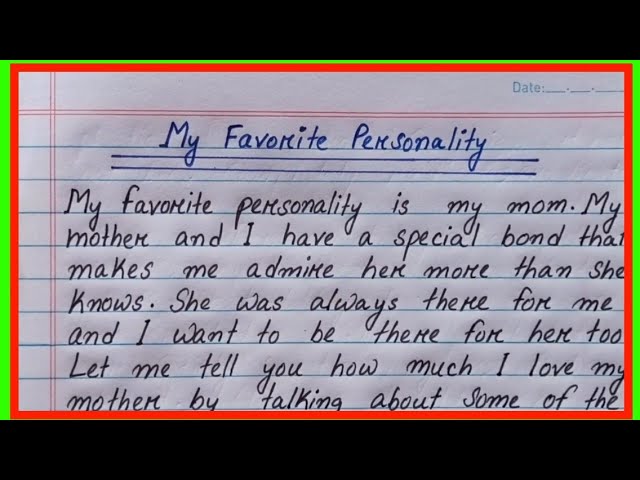 Date:__.__.__
My Favorite Personality
My favorite personality is my mom. My
mother and I have a special bond that
makes me admire her more than she
knows. She was always there for me
and I want to be there for her too
Let me tell you how much I love my
mother by talking about some of the